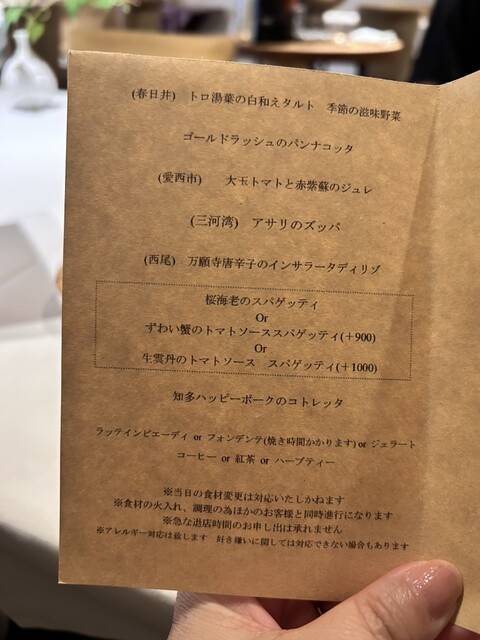 (春日井) トロ湯葉の白和えタルト 季節の滋味野菜
ゴールドラッシュのパンナコッタ
(愛西市) 大玉トマトと赤紫蘇のジュレ
(三河湾) アサリのズッパ
(西尾) 万願寺唐辛子のインサラータディリゾ
桜海老のスパゲッティ
Or
ずわい蟹のトマトソーススパゲッティ(+900)
Or
生雲丹のトマトソース スパゲッティ(+1000)
知多ハッピーポークのコトレッタ
ラッテインピエーディ or フォンデンテ(焼き時間かかります) or ジェラート
コーヒー or 紅茶 or ハーブティー
※当日の食材変更は対応いたしかねます
※食材の火入れ、調理の為ほかのお客様と同時進行になります
※急な退店時間のお申し出は承れません
※アレルギー対応は致します 好き嫌いに関しては対応できない場合もあります